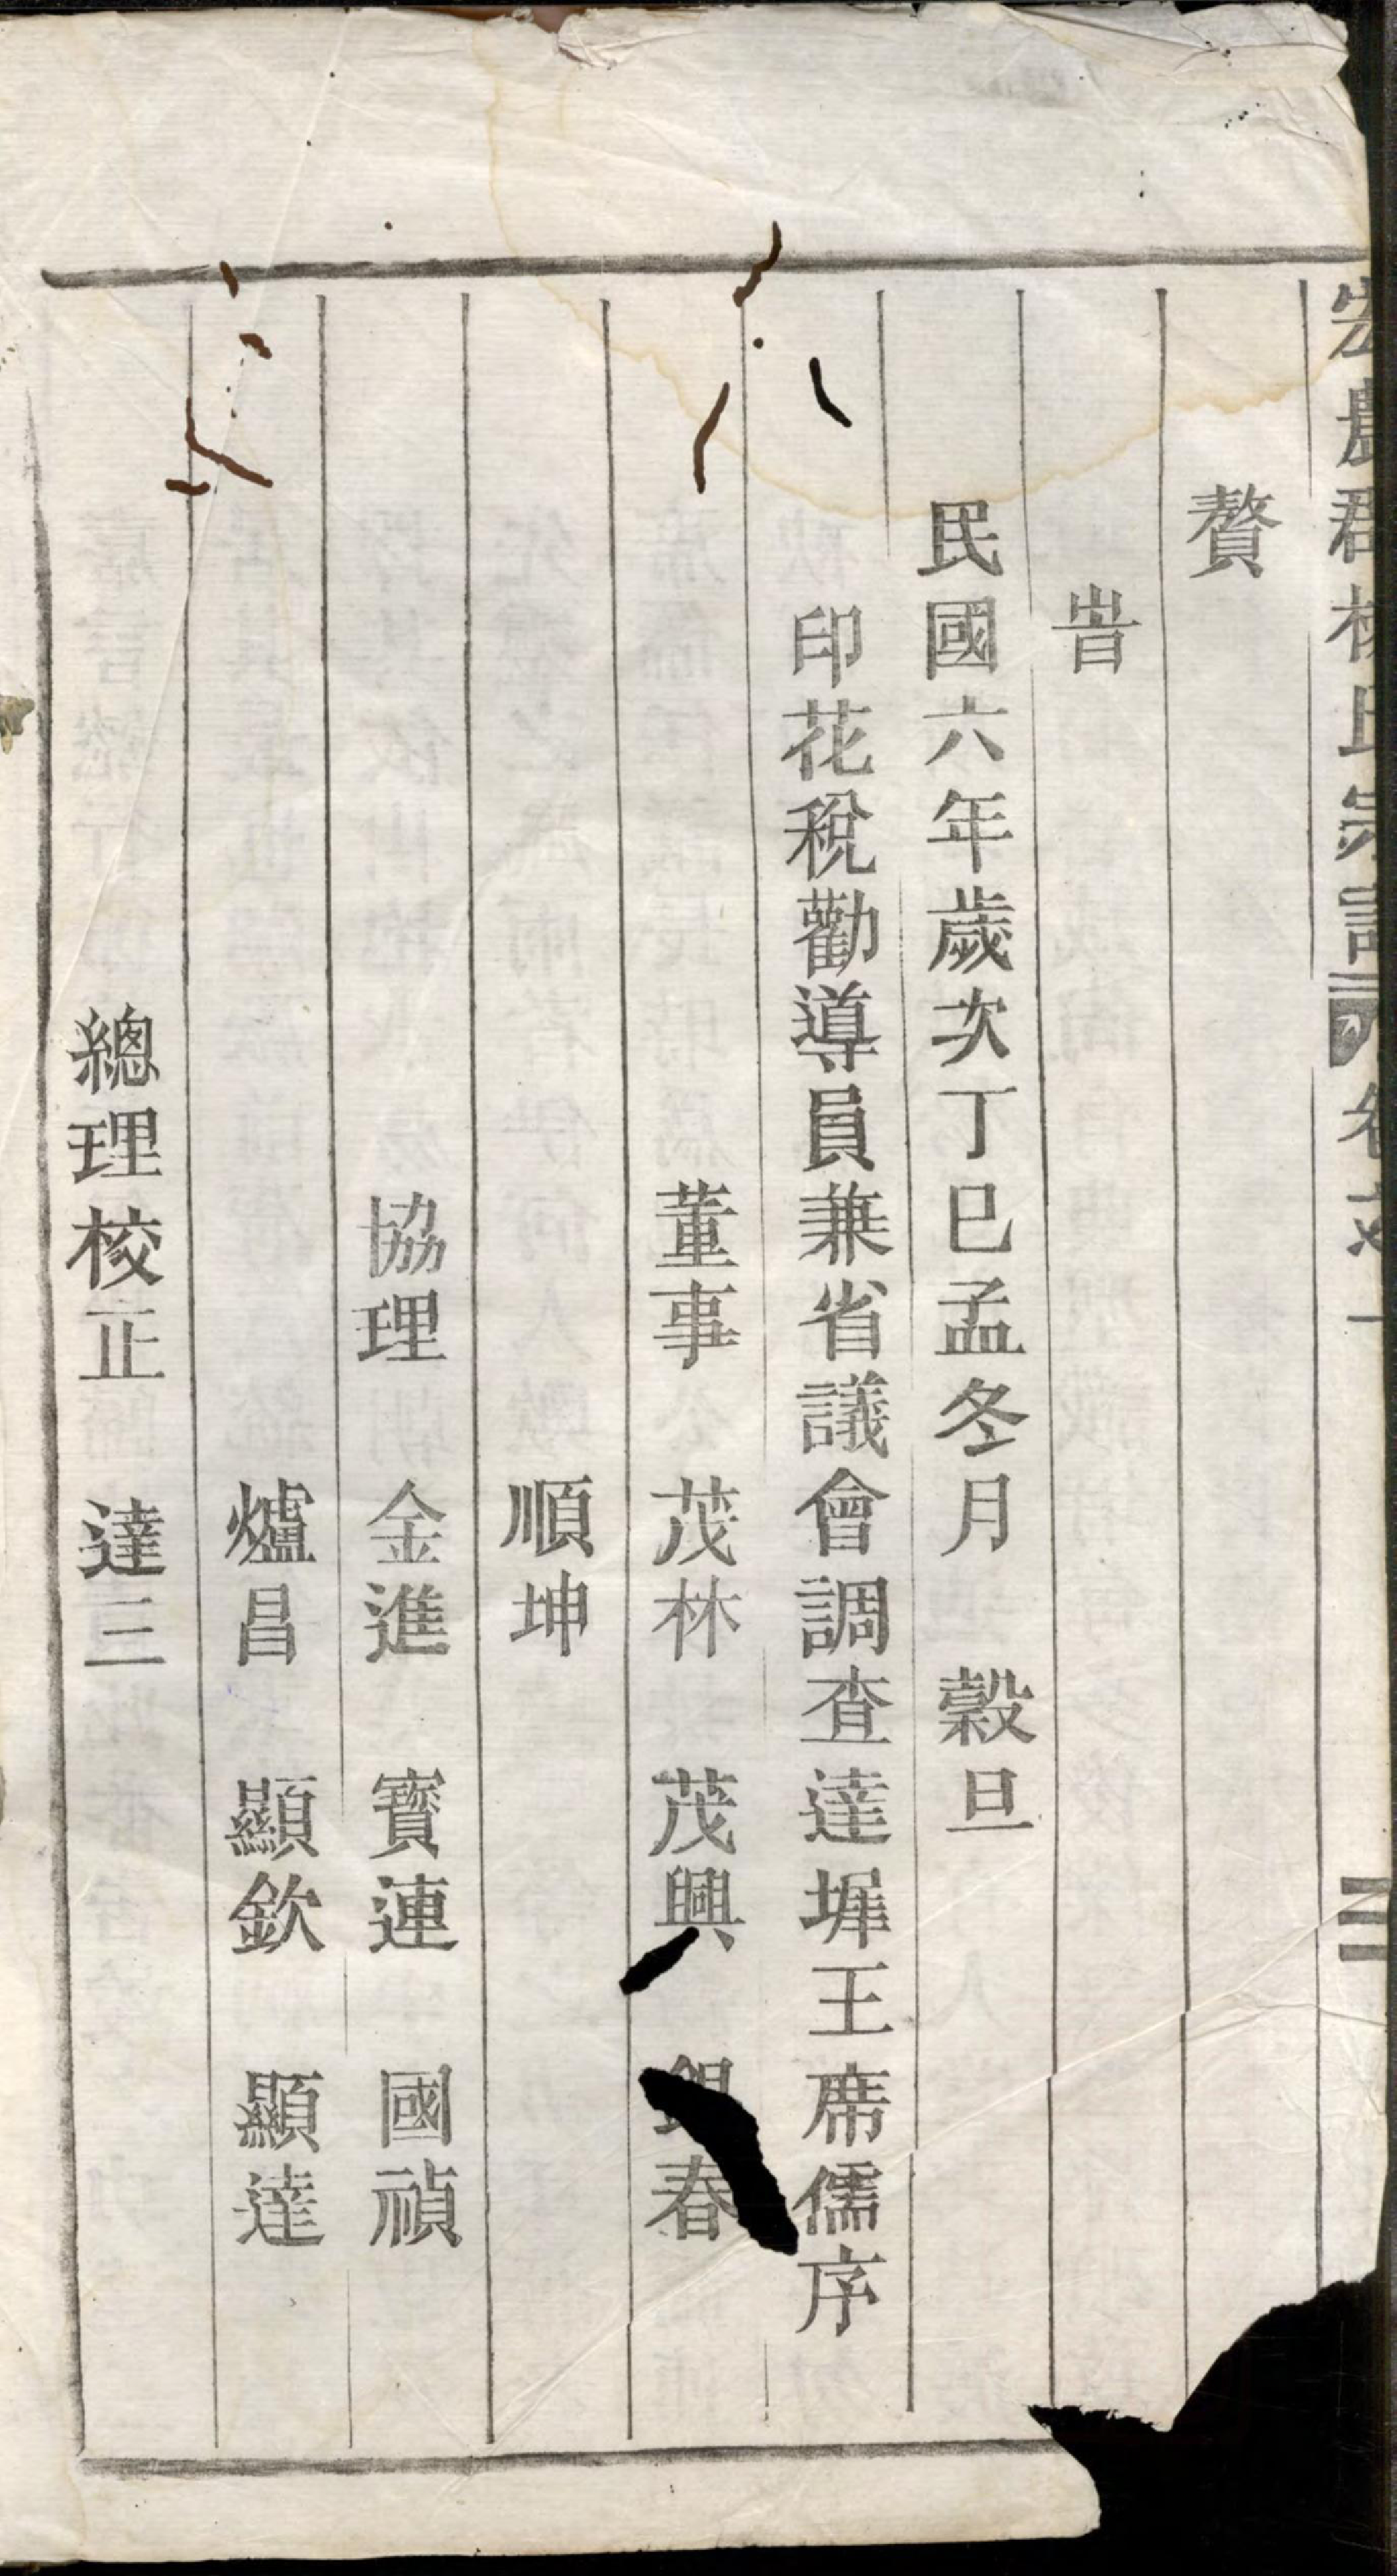 宏農群楊氏宗譜 卷之一 三
贅
旹
民國六年歲次丁巳孟冬月 穀旦
印花稅勸導員兼省議會調查達墀王席儒序
董事 茂林 茂興 銀春
順坤
協理 金進 寶連 國禎
爐昌 顯欽 顯達
總理校正 達三